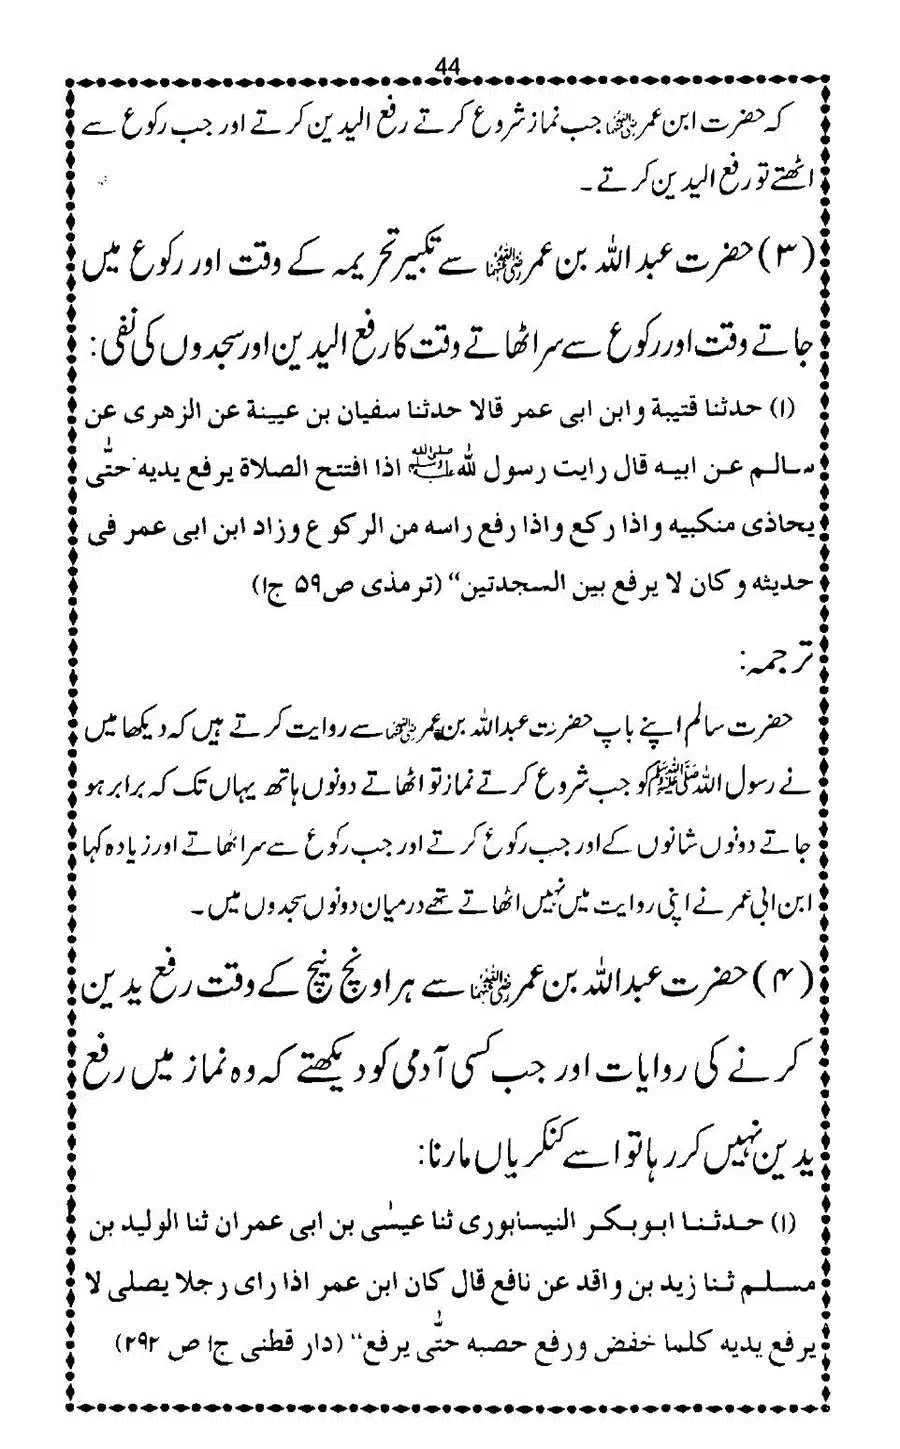 44
کہ حضرت ابن عمر رضی اللہ عنہما جب نماز شروع کرتے رفع الیدین کرتے اور جب رکوع سے
اٹھتے تو رفع الیدین کرتے ۔
(۳) حضرت عبد اللہ بن عمر رضی اللہ عنہما سے تکبیر تحریمہ کے وقت اور رکوع میں
جاتے وقت اور رکوع سے سر اٹھاتے وقت کا رفع الیدین اور سجدوں کی نفی:
(۱) حدثنا قتیبة و ابن ابی عمر قالا حدثنا سفیان بن عیینة عن الزهری عن
سالم عن ابیه قال رایت رسول للہ ﷺ اذا افتتح الصلاة یرفع یدیه حتّٰی
یحاذی منکبیه و اذا رکع و اذا رفع راسه من الرکوع و زاد ابن ابی عمر فی
حدیثه و کان لا یرفع بین السجدتین‘‘ (ترمذی ص۵۹ ج۱)
ترجمہ:
حضرت سالم اپنے باپ حضرت عبداللہ بن عمر رضی اللہ عنہما سے روایت کرتے ہیں کہ دیکھا میں
نے رسول اللہ ﷺ کو جب شروع کرتے نماز تو اٹھاتے دونوں ہاتھ یہاں تک کہ برابر ہو
جاتے دونوں شانوں کے اور جب رکوع کرتے اور جب رکوع سے سر اٹھاتے اور زیادہ کہا
ابن ابی عمر نے اپنی روایت میں نہیں اٹھاتے تھے درمیان دونوں سجدوں میں ۔
(۴) حضرت عبداللہ بن عمر رضی اللہ عنہما سے ہر اونچ نیچ کے وقت رفع یدین
کرنے کی روایات اور جب کسی آدمی کو دیکھتے کہ وہ نماز میں رفع
یدین نہیں کر رہا تو اسے کنکریاں مارنا:
(۱) حدثنا ابوبکر النیسابوری ثنا عیسٰی بن ابی عمران ثنا الولید بن
مسلم ثنا زید بن واقد عن نافع قال کان ابن عمر اذا رای رجلا یصلی لا
یرفع یدیه کلما خفض و رفع حصبه حتّٰی یرفع‘‘ (دار قطنی ج۱ ص ۲۹۲)